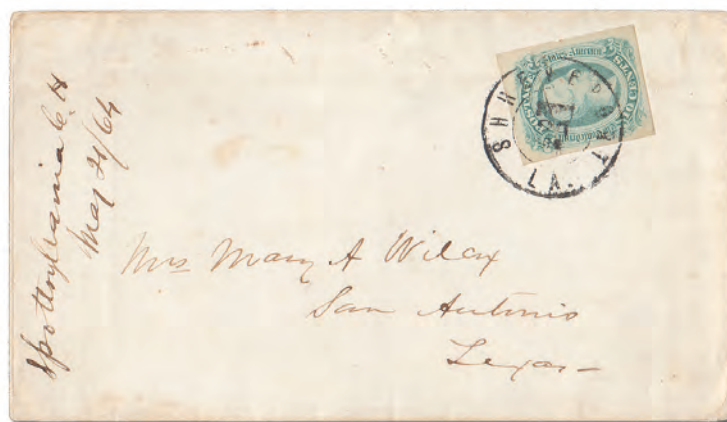 Spottsylvania C. H
May 21/64
SHREVEPORT
LA.
Mrs Mary A Wilcox
San Antonio
Texas